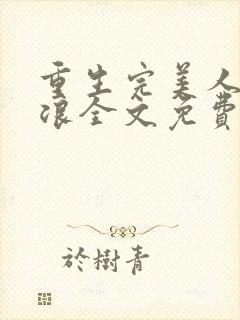 重生完美人
浪全文免費
於樹青